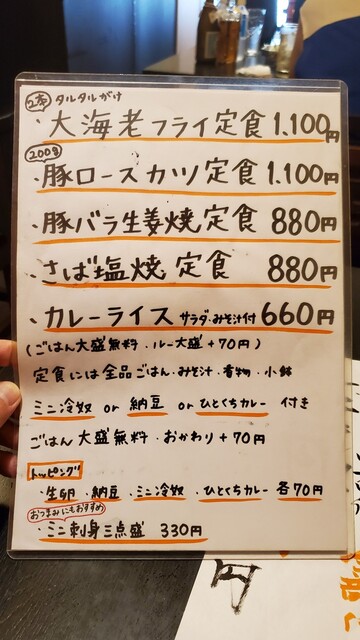 2本 タルタルがけ
・大海老フライ定食 1,100円
200g
・豚ロースカツ定食 1,100円
・豚バラ生姜焼定食 880円
・さば塩焼定食 880円
・カレーライス サラダ・みそ汁付 660円
(ごはん大盛無料・ルー大盛+70円)
定食には全品ごはん・みそ汁・煮物・小鉢
ミニ冷奴 or 納豆 or ひとくちカレー 付き
ごはん大盛無料・おかわり+70円
トッピング
・生卵・納豆・ミニ冷奴・ひとくちカレー 各70円
おつまみにもおすすめ
・ミニ刺身三点盛 330円
円